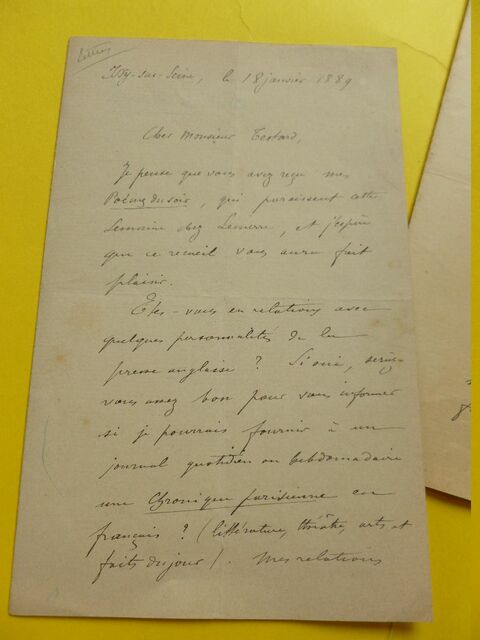 Lettres
Ivry-sur-Seine, le 18 janvier 1889
Cher Monsieur Testard,
Je pense que vous avez reçu mes
Poèmes du soir, qui paraissent cette
semaine chez Lemerre, et j'espère
que ce recueil vous aura fait
plaisir.
Etes-vous en relations avec
quelques personnalités de la
presse anglaise ? Si oui, seriez-
vous assez bon pour vous informer
si je pourrais fournir à un
journal quotidien ou hebdomadaire
une Chronique parisienne en
français ? (littérature, théâtre, arts et
faits du jour). Mes relations